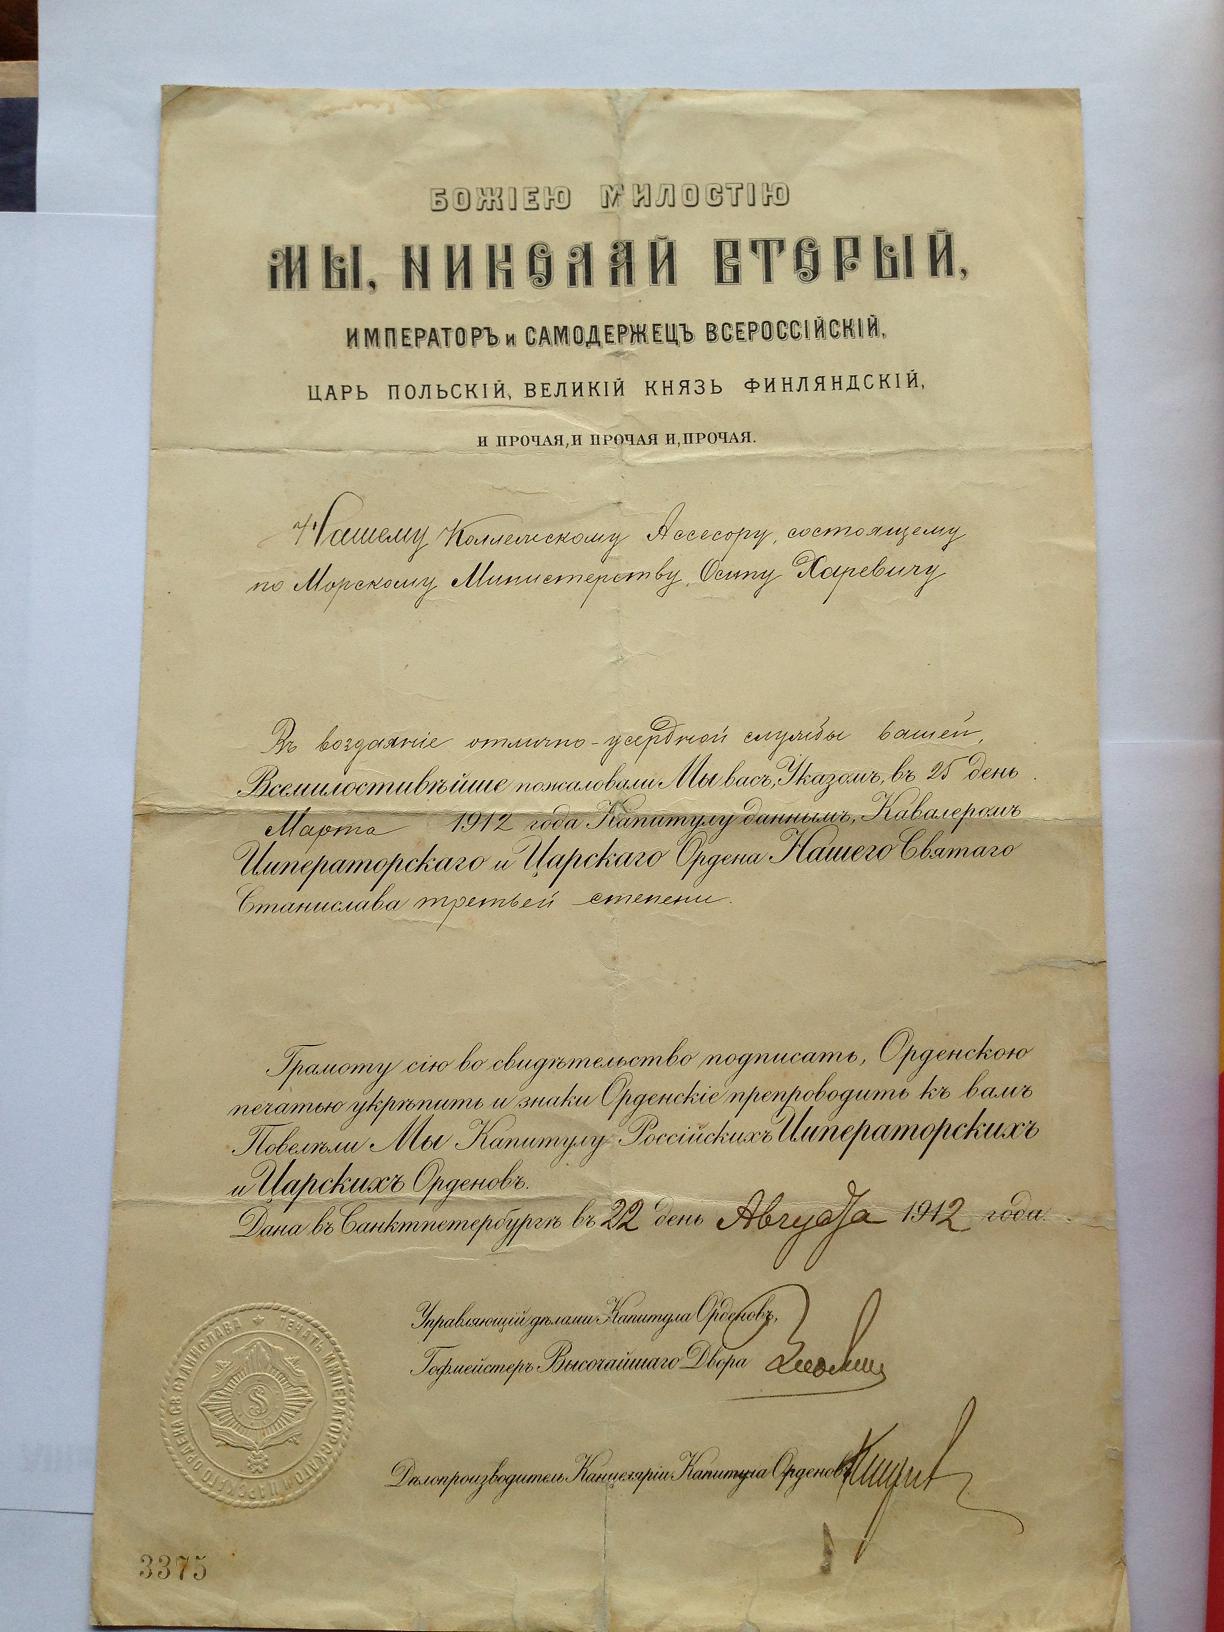 БОЖІЕЮ МИЛОСТІЮ
МЫ, НИКОЛАЙ ВТОРЫЙ,
ИМПЕРАТОРЪ и САМОДЕРЖЕЦЪ ВСЕРОССІЙСКІЙ,
ЦАРЬ ПОЛЬСКІЙ, ВЕЛИКІЙ КНЯЗЬ ФИНЛЯНДСКІЙ,
И ПРОЧАЯ, И ПРОЧАЯ И, ПРОЧАЯ.
Нашему Коллежскому Ассесору, состоящему
по Морскому Министерству, Осипу Харевичу
Въ воздаяніе отлично-усердной службы вашей,
Всемилостивѣйше пожаловали Мы васъ, Указомъ, въ 25 день
Марта 1912 года Капитулу даннымъ, Кавалеромъ
Императорскаго и Царскаго Ордена Нашего Святаго
Станислава третьей степени.
Грамоту сію во свидѣтельство подписать, Орденскою
печатью укрѣпить и знаки Орденскіе препроводить къ вамъ
Повелѣли Мы Капитулу Россійскихъ Императорскихъ
и Царскихъ Орденовъ.
Дана въ Санктпетербургѣ въ 22 день Августа 1912 года.
Управляющій дѣлами Капитула Орденовъ,
Гофмейстеръ Высочайшаго Двора
Дѣлопроизводитель Канцеляріи Капитула Орденовъ
ПЕЧАТЬ ИМПЕРАТОРСКАГО И ЦАРСКАГО ОРДЕНА СВ. СТАНИСЛАВА
S
3375